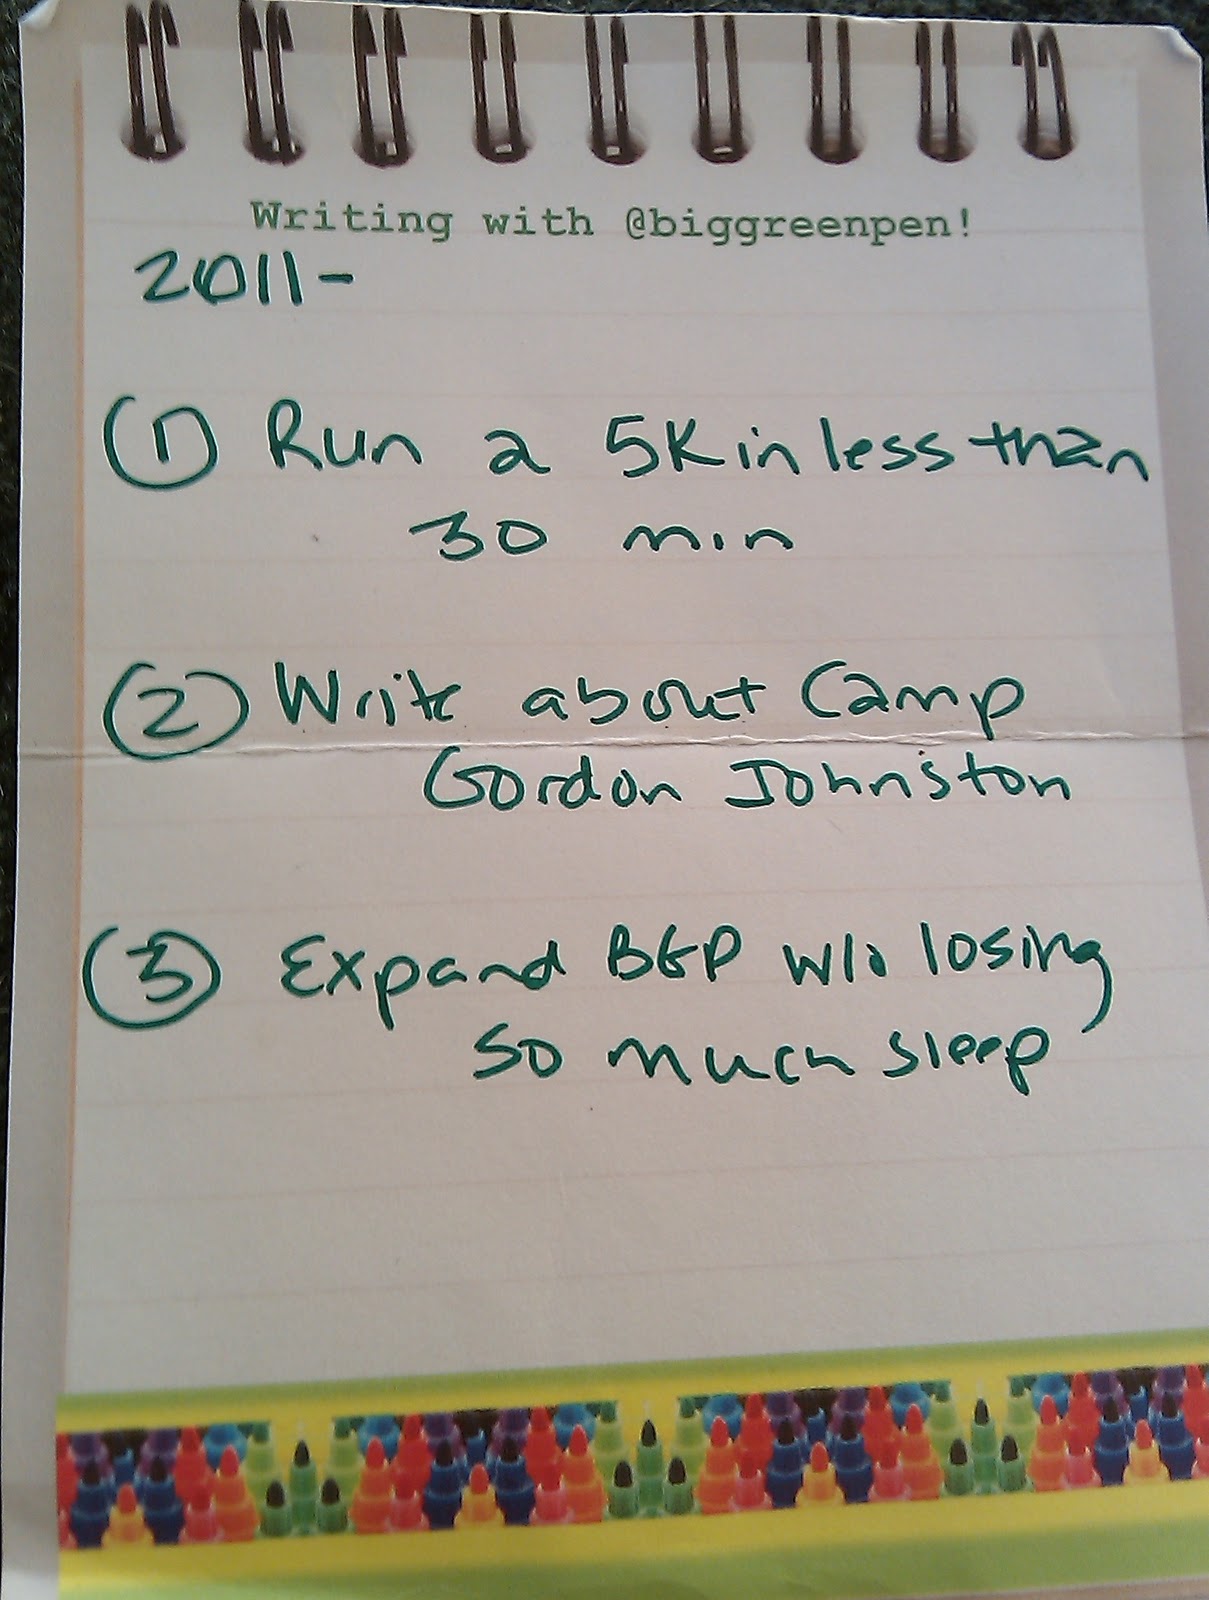 Writing with @biggreenpen!
2011-
① Run a 5K in less than
30 min
② Write about Camp
Gordon Johnston
③ Expand BGP w/o losing
so much sleep